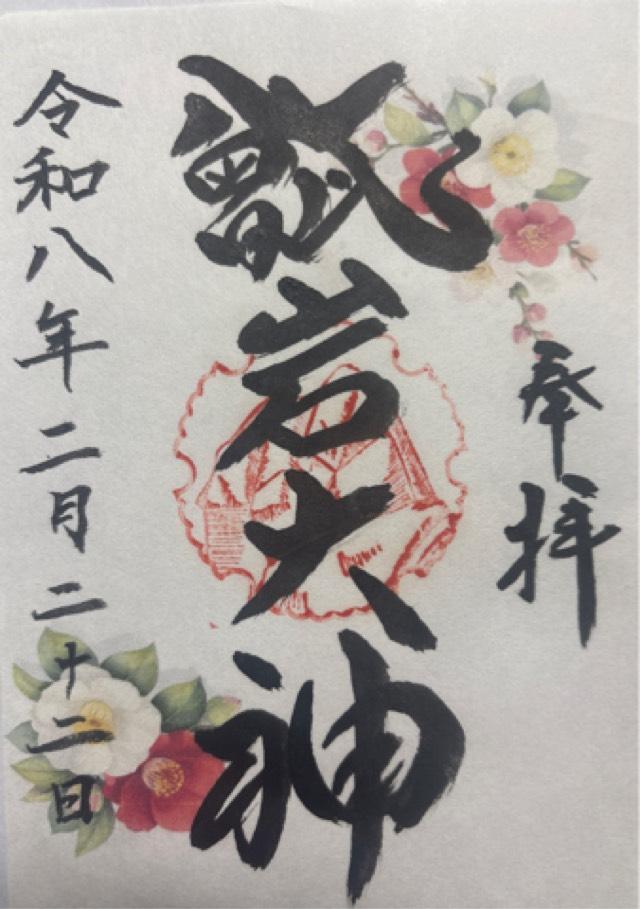 奉拝
甑岩大神
令和八年二月二十二日